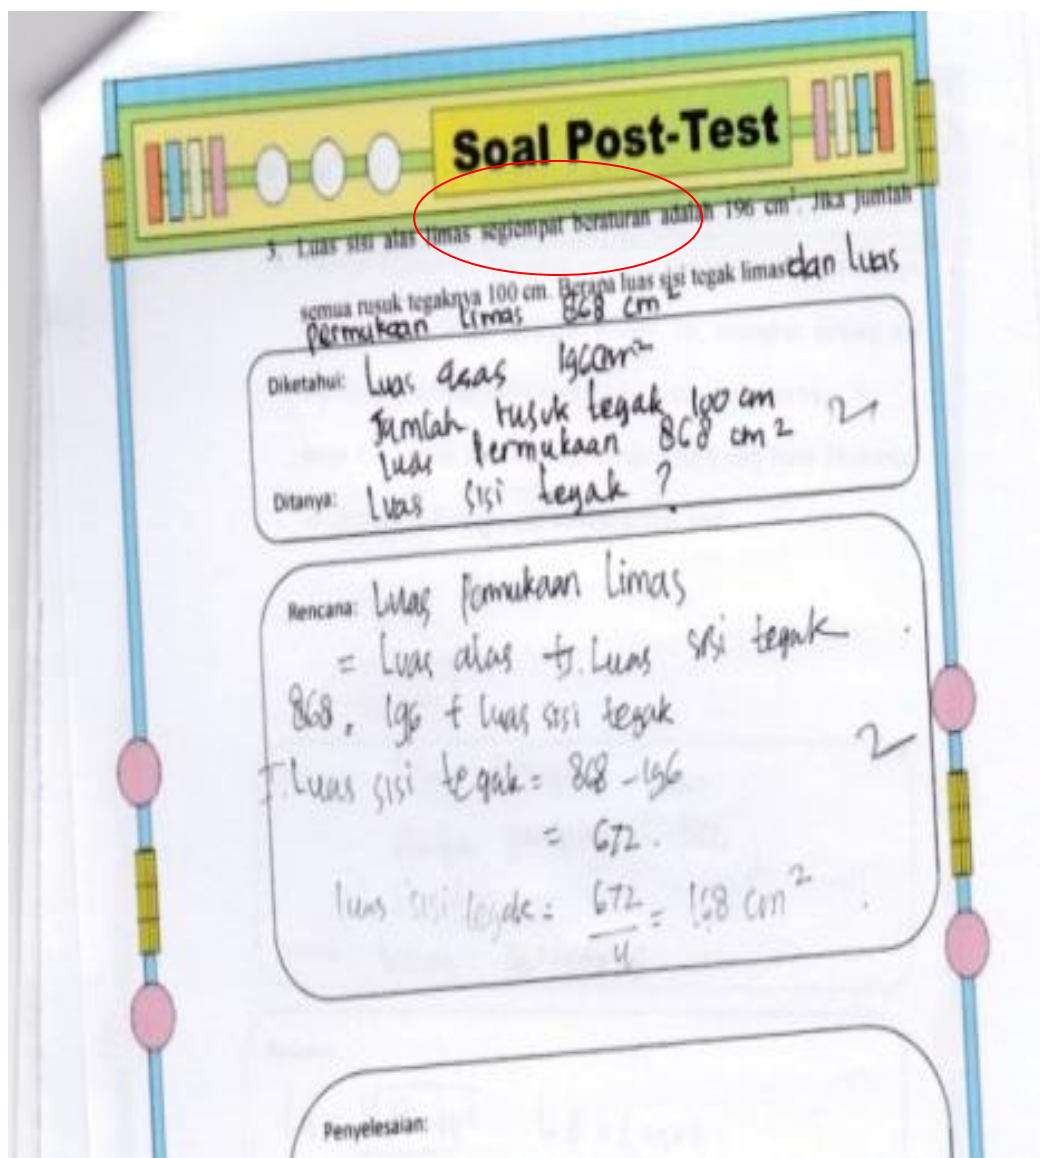 Soal Post-Test
3. Luas sisi alas limas segiempat beraturan adalah 196 cm². Jika jumlah
semua rusuk tegaknya 100 cm. Berapa luas sisi tegak limas dan luas
permukaan limas 868 cm²
Diketahui: Luas alas 196cm²
Jumlah rusuk tegak 100 cm
luas Permukaan 868 cm²
2
Ditanya: Luas sisi tegak ?
Rencana: Luas Permukaan Limas
= Luas alas + J. Luas sisi tegak
868, 196 + luas sisi tegak
2
J. Luas sisi tegak = 868 - 196
= 672.
luas sisi tegak = 672/4 = 168 cm²
Penyelesaian: